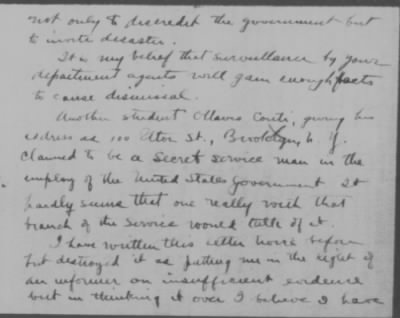 not only to discredit the government but
to invite disaster.
It is my belief that surveillance by your
department agents will gain enough facts
to cause dismissal.
Another student Ottavio Conti, giving his
address as 100 St., Brooklyn, N.Y.
claimed to be a Secret Service man in the
employ of the United States Government. It
hardly seems that one really with that
branch of the service would talk of it.
I have written this letter before
but destroyed it as putting me in the light of
an informer on insufficient evidence
but in thinking it over I believe I have